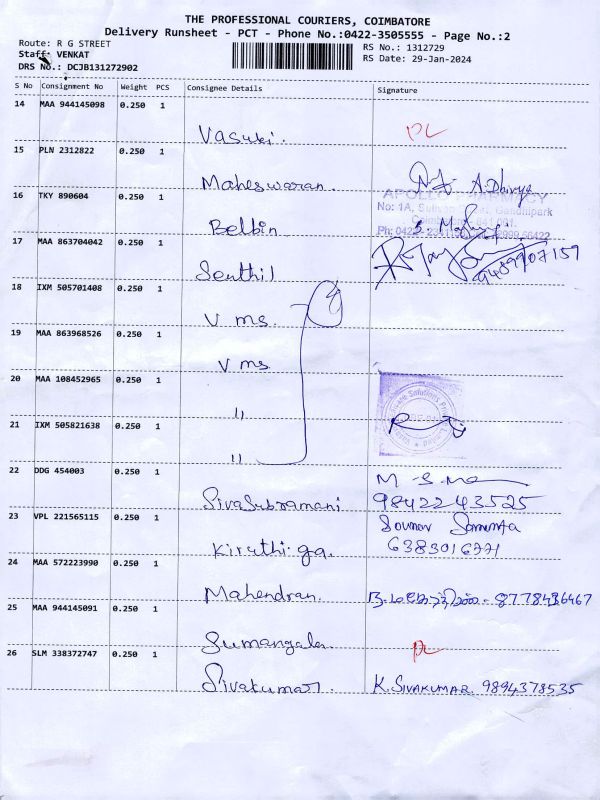 THE PROFESSIONAL COURIERS, COIMBATORE
Delivery Runsheet - PCT - Phone No.:0422-3505555 - Page No.:2
Route: R G STREET
RS No.: 1312729
Staff: VENKAT
RS Date: 29-Jan-2024
DRS No.: DCJB131272902
S No Consignment No Weight PCS Consignee Details Signature
14 MAA 944145098 0.250 1
Vasuki. PL
15 PLN 2312822 0.250 1
Maheswaran. A. Dhivya
16 TKY 890604 0.250 1
APOLLO PHARMACY
No: 1A,
Belbin
17 MAA 863704042 0.250 1
Senthil 9489907159
18 IXM 505701408 0.250 1
V ms. 4
19 MAA 863968526 0.250 1
V ms.
20 MAA 108452965 0.250 1
"
21 IXM 505821638 0.250 1
"
22 DDG 454003 0.250 1
SivaSubramani 9842243525
23 VPL 221565115 0.250 1
Kiruthi-ga. 6383016771
24 MAA 572223990 0.250 1
Mahendran. 8778436467
25 MAA 944145091 0.250 1
Sumangala. PL
26 SLM 338372747 0.250 1
Sivakumar. K. SIVAKUMAR. 9894378535